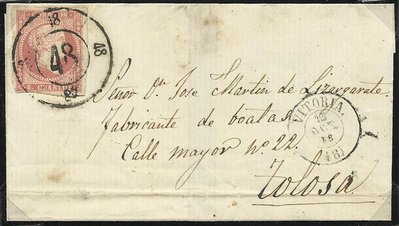 48
48
48
CUARTOS
Señor Dn. Jose Martin de Lizargarate
Fabricante de boatas
Calle mayor nº 22.
Tolosa
VITORIA
(48)